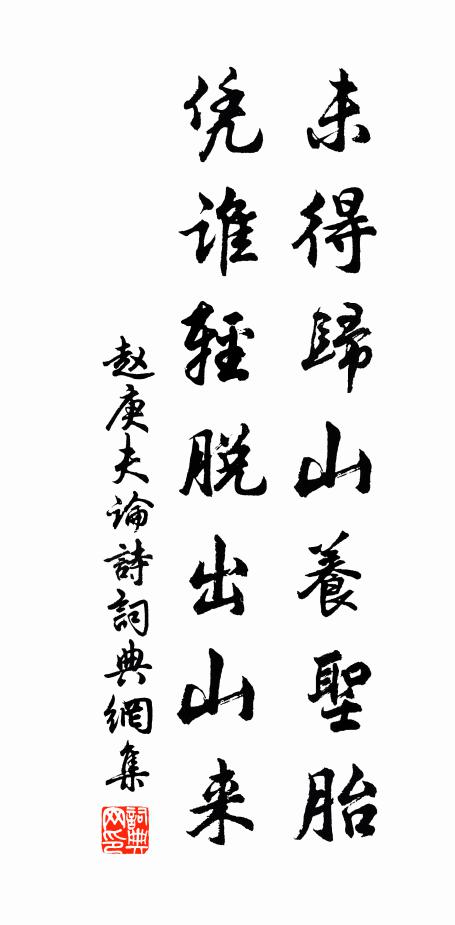 未得歸山養聖胎
凭谁輕脱出山来
赵庚夫论詩詞典網集
詞典网印